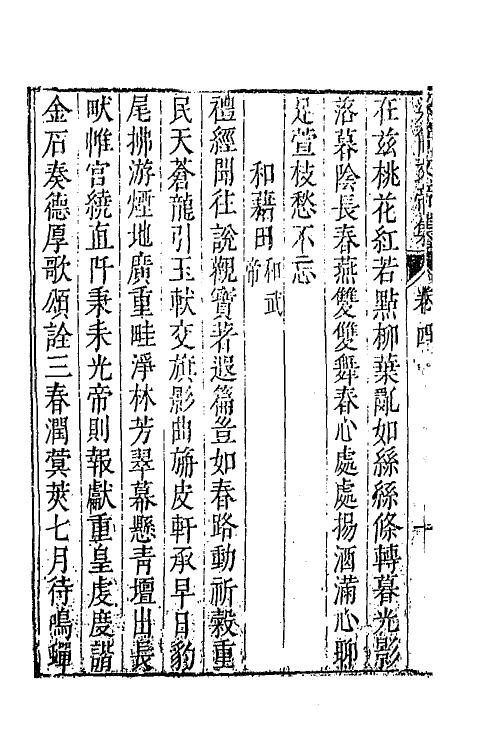 梁簡文帝集 卷四
在茲桃花紅若點柳葉亂如絲絲條轉暮光影
落暮陰長春燕雙雙舞春心處處揚酒滿心聊
足萱枝愁不忘
和藉田和武帝
禮經聞往說觀寶著遐篇豈如春路動祈穀重
民天蒼龍引玉軑交旗影曲旃皮軒承早日豹
尾拂游煙地廣重畦淨林芳翠幕懸青壇出長
畎帷宮繞直阡秉耒光帝則報獻重皇虔度諧
金石奏德厚歌頌詮三春潤蓂莢七月待鳴蟬